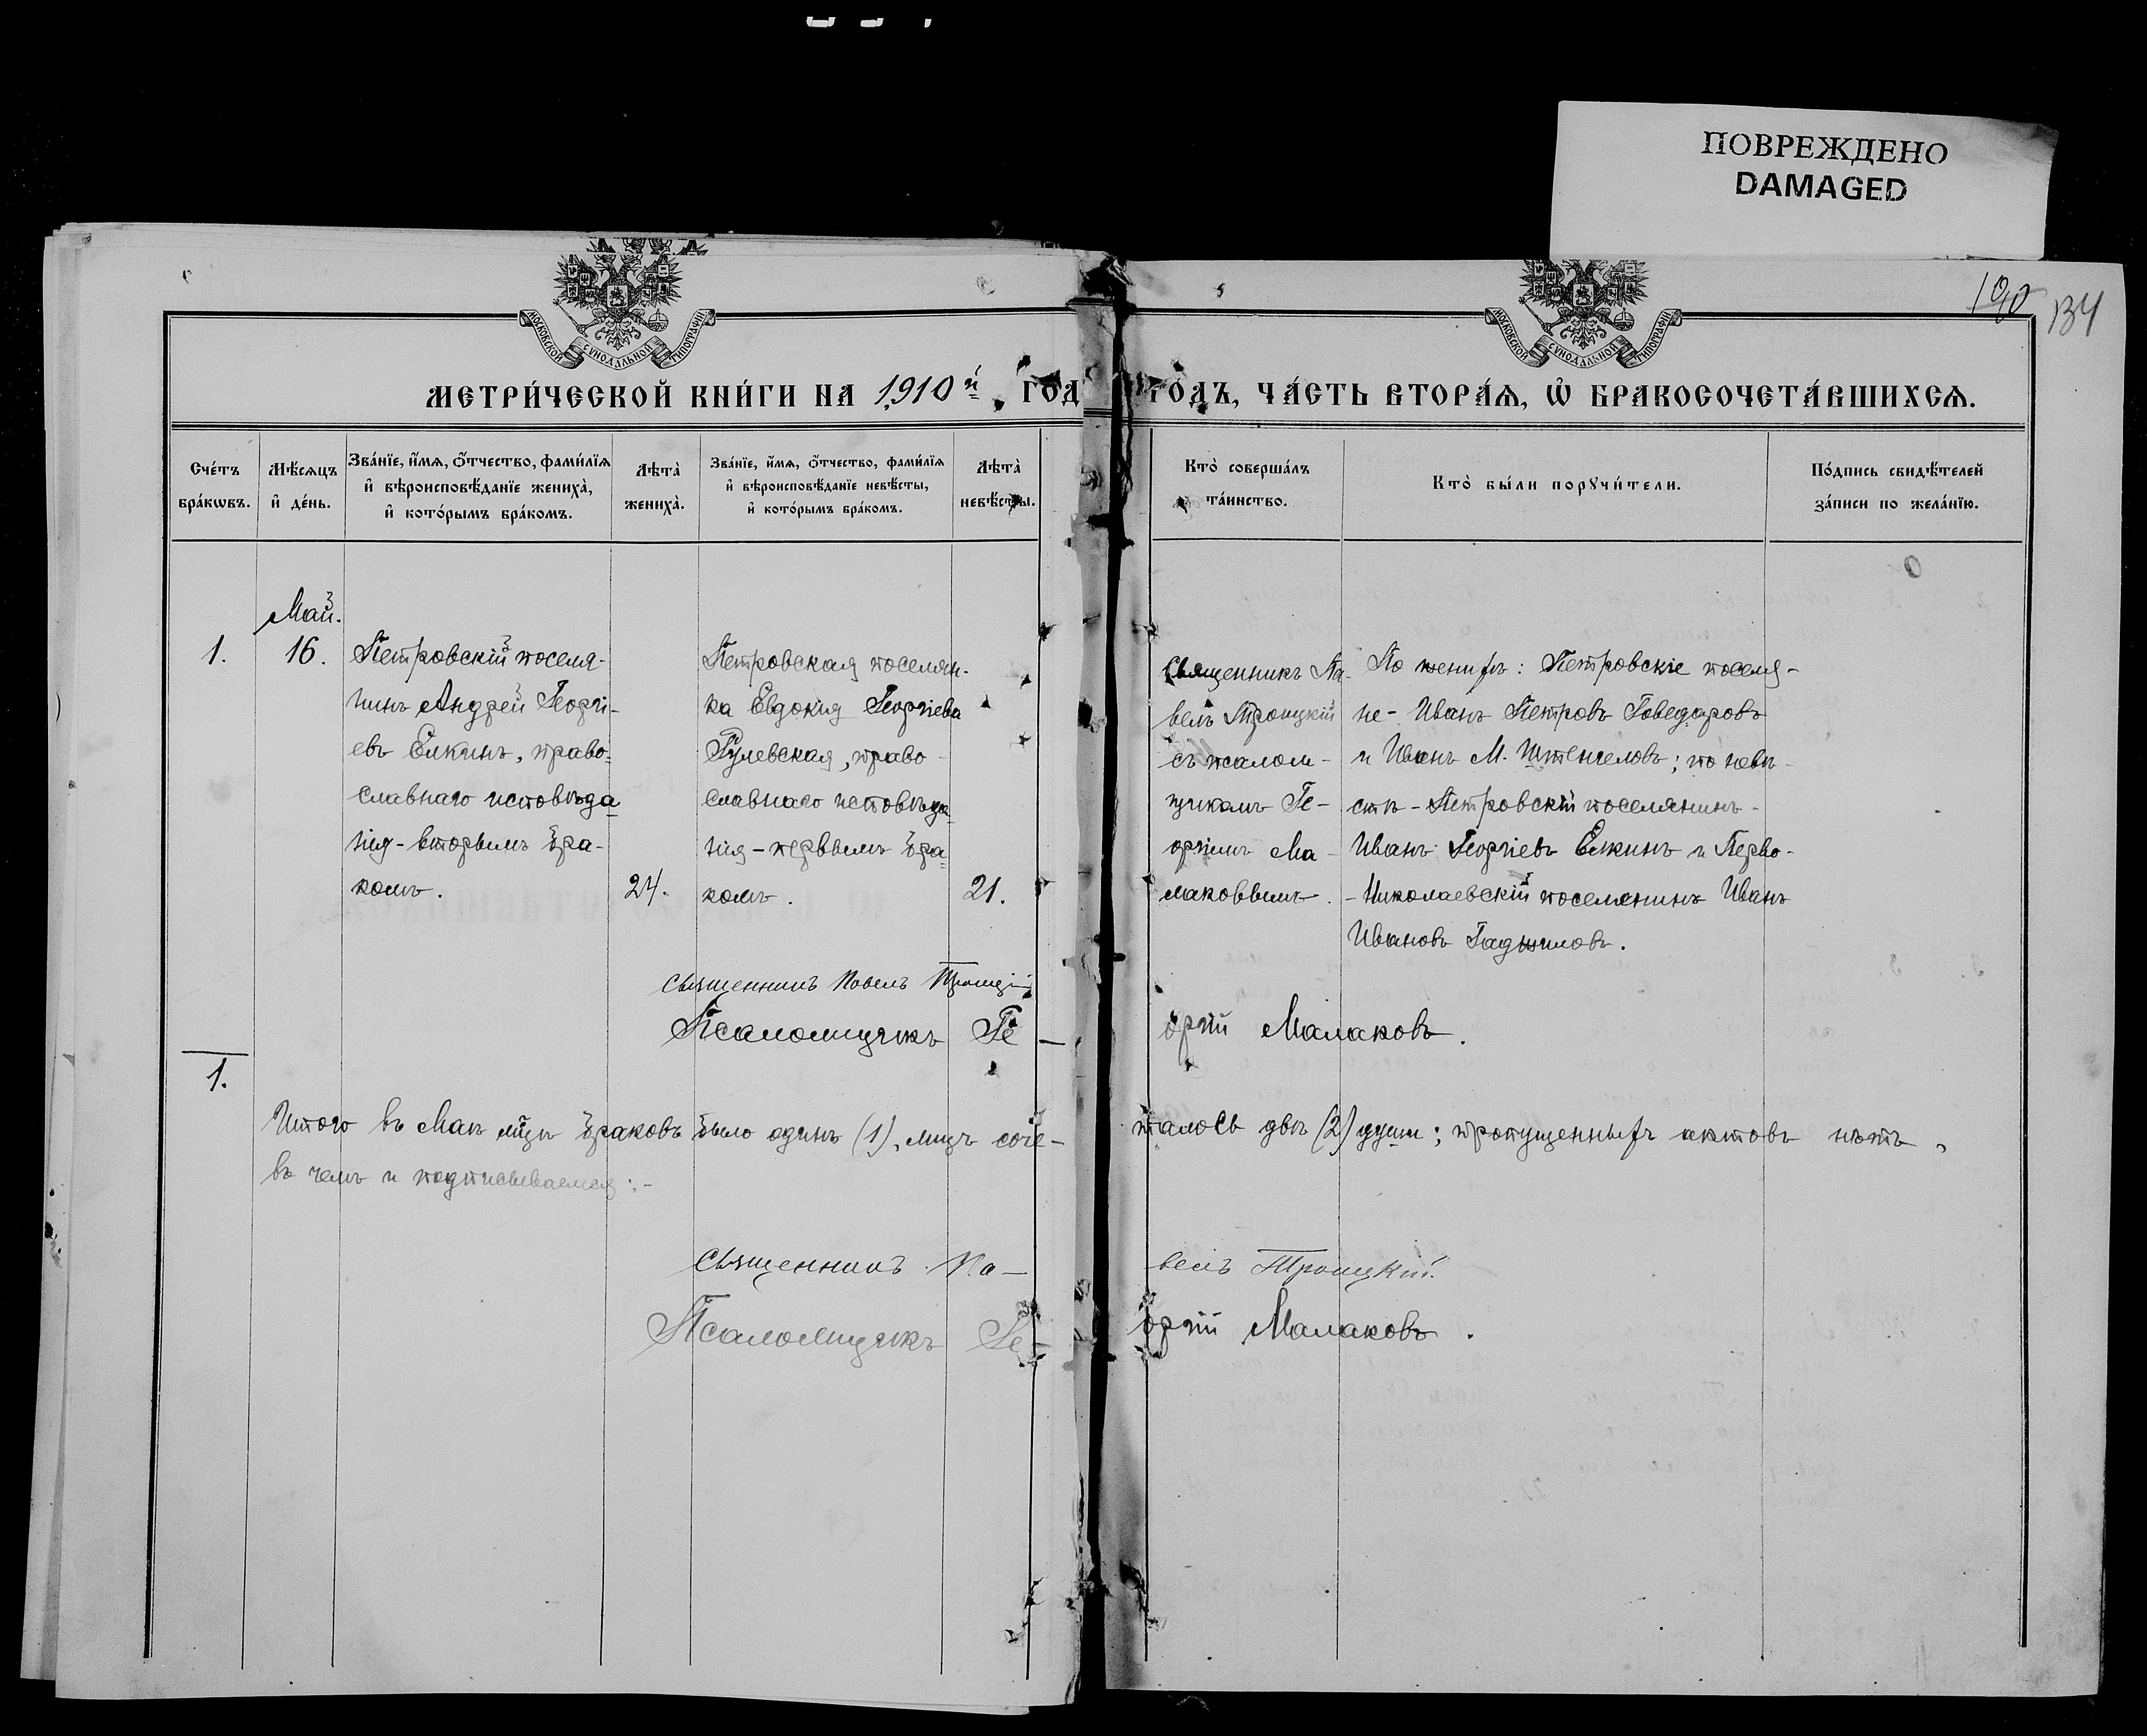 ПОВРЕЖДЕНО
DAMAGED
134
МОСКОВСКОЙ СУНОДАЛЬНОЙ ТИПОГРАФІИ
МОСКОВСКОЙ СУНОДАЛЬНОЙ ТИПОГРАФІИ
МЕТРИ́ЧЕСКОЙ КНИ́ГИ НА 1910й ГОД
ГО́ДЪ, ЧА́СТЬ ВТОРА́Ѧ, Ѽ БРАКОСОЧЕТА́ВШИХСѦ.
Сче́тъ бра́кѡвъ.
Мѣ́сяцъ и҆ де́нь.
Зва́нїе, и҆́мѧ, ѻ҆́тчество, фами́лїѧ и҆ вѣроисповѣ́данїе жениха̀, и҆ кото́рымъ бра́комъ.
Лѣта̀ жениха̀.
Зва́нїе, и҆́мѧ, ѻ҆́тчество, фами́лїѧ и҆ вѣроисповѣ́данїе невѣ́сты, и҆ кото́рымъ бра́комъ.
Лѣта̀ невѣ́сты.
Кто̀ соверша́лъ та́инство.
Кто̀ бы́ли порꙋчи́тели.
По́дпись свидѣ́телей за́писи по жела́нїю.
Май.
1.
16.
Петровскій поселя-
нинъ Андрей Георгі-
евъ Елкинъ, право=
славнаго исповѣда
нія - вторымъ бра-
комъ.
24.
Петровская поселян-
ка Евдокия Георгіева
Гулевская, право-
славнаго исповѣда
нія - первымъ бра=
комъ.
21.
Священникъ Па-
велъ Троицкій
съ псалом-
щикомъ Ге-
оргіемъ Ма-
лаковымъ.
По женихѣ: Петровскіе поселя-
не - Иванъ Петровъ Говедаровъ
и Иванъ М. Штенгеловъ; по невѣ-
стѣ - Петровскій поселянинъ -
Иванъ Георгіевъ Елкинъ и Перво-
- Николаевскій поселянинъ Иванъ
Ивановъ Гаджиловъ.
Священникъ Павелъ Троицкій
Псаломщикъ Ге-
оргій Малаковъ.
1.
Итого въ Маѣ мцѣ браковъ было одинъ (1), лицъ соче-
талось двѣ (2) души; пропущенныхъ актовъ нѣтъ,
въ чемъ и подписываемся:-
Священникъ Па-
велъ Троицкій.
Псаломщикъ Ге-
оргій Малаковъ.